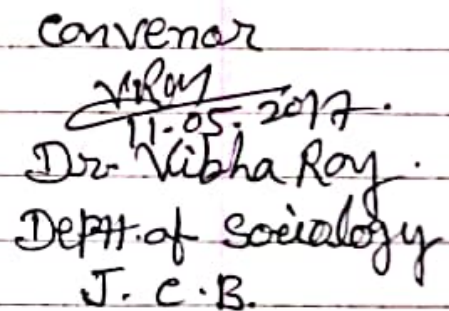 Convenor
VRoy
11.05.2017.
Dr. Vibha Roy.
Deptt. of Sociology
J. C. B.